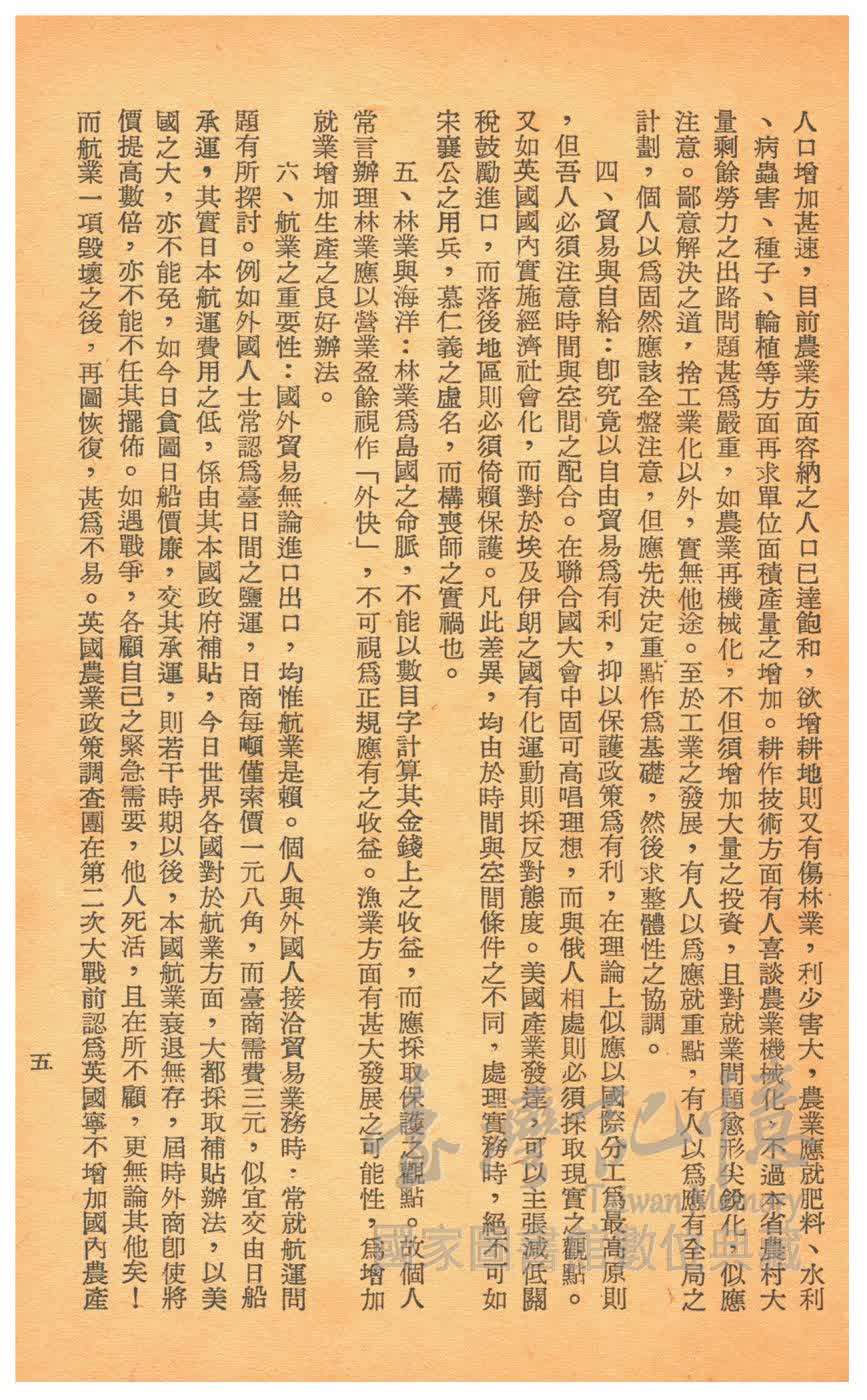 人口增加甚速，目前農業方面容納之人口已達飽和，欲增耕地則又有傷林業，利少害大，農業應就肥料、水利
、病蟲害、種子、輪植等方面再求單位面積產量之增加。耕作技術方面有人喜談農業機械化，不過本省農村大
量剩餘勞力之出路問題甚爲嚴重，如農業再機械化，不但須增加大量之投資，且對就業問題愈形尖銳化，似應
注意。鄙意解決之道，捨工業化以外，實無他途。至於工業之發展，有人以爲應就重點，有人以爲應有全局之
計劃，個人以爲固然應該全盤注意，但應先決定重點作爲基礎，然後求整體性之協調。
四、貿易與自給：卽究竟以自由貿易爲有利，抑以保護政策爲有利，在理論上似應以國際分工爲最高原則
，但吾人必須注意時間與空間之配合。在聯合國大會中固可高唱理想，而與俄人相處則必須採取現實之觀點。
又如英國國內實施經濟社會化，而對於埃及伊朗之國有化運動則採反對態度。美國產業發達，可以主張減低關
稅鼓勵進口，而落後地區則必須倚賴保護。凡此差異，均由於時間與空間條件之不同，處理實務時，絕不可如
宋襄公之用兵，慕仁義之虛名，而構喪師之實禍也。
五、林業與海洋：林業爲島國之命脈，不能以數目字計算其金錢上之收益，而應採取保護之觀點。故個人
常言辦理林業應以營業盈餘視作「外快」，不可視爲正規應有之收益。漁業方面有甚大發展之可能性，爲增加
就業增加生產之良好辦法。
六、航業之重要性：國外貿易無論進口出口，均惟航業是賴。個人與外國人接洽貿易業務時，常就航運問
題有所探討。例如外國人士常認爲臺日間之鹽運，日商每噸僅索價一元八角，而臺商需費三元，似宜交由日船
承運，其實日本航運費用之低，係由其本國政府補貼，今日世界各國對於航業方面，大都採取補貼辦法，以美
國之大，亦不能免，如今日貪圖日船價廉，交其承運，則若干時期以後，本國航業衰退無存，屆時外商卽使將
價提高數倍，亦不能不任其擺佈。如遇戰爭，各顧自己之緊急需要，他人死活，且在所不顧，更無論其他矣！
而航業一項毀壞之後，再圖恢復，甚爲不易。英國農業政策調查團在第二次大戰前認爲英國寧不增加國內農產
五
臺灣記憶
Taiwan Memory
國家圖書館數位典藏